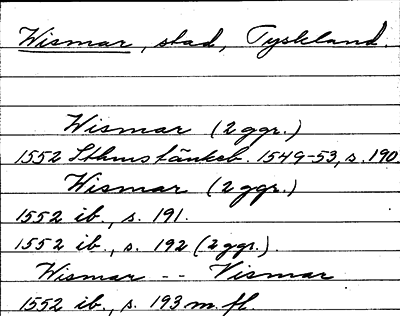 Wismar, stad, Tyskland.
Wismar (2 ggr.)
1552 Sthms tänkeb. 1549-53, s. 190
Wismar (2 ggr.)
1552 ib., s. 191.
1552 ib., s. 192 (2 ggr.).
Wismar -- Vismar
1552 ib., s. 193 m. fl.